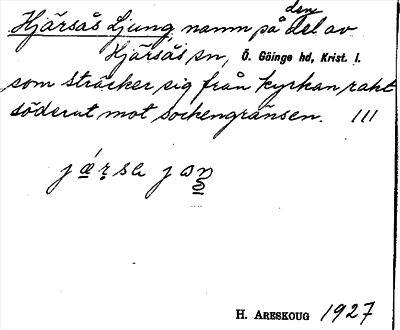 Hjärsås Ljung, namn på den del av
Hjärsås sn, Ö. Göinge hd, Krist. l.
som sträcker sig från kyrkan rakt
söderut mot sockengränsen. III
H. Areskoug 1927